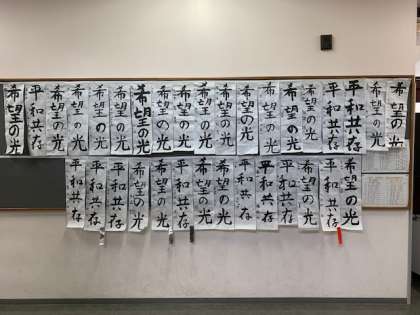 希望の光
平和共存
希望の光
希望の光
希望の光
希望の光
希望の光
希望の光
希望の光
希望の光
希望の光
希望の光
希望の光
希望の光
希望の光
平和共存
平和共存
希望の光
希望の光
平和共存
平和共存
平和共存
希望の光
希望の光
平和共存
希望の光
希望の光
平和共存
平和共存
平和共存
希望の光
平和共存
希望の光